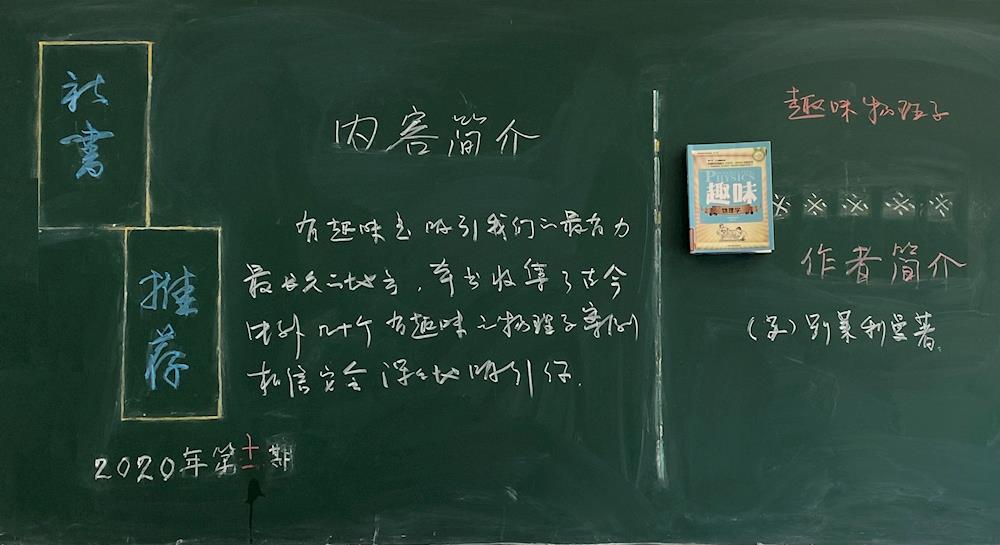 新书
推荐
2020年第十一期
内容简介
有趣味是吸引我们的最有力
最长久的地方，本书收集了古今
中外几十个有趣味的物理学案例
相信它会深深地吸引你.
趣味物理学
PHYSICS
趣味
物理学
※ ※ ※ ※ ※
作者简介
(俄)别莱利曼著.